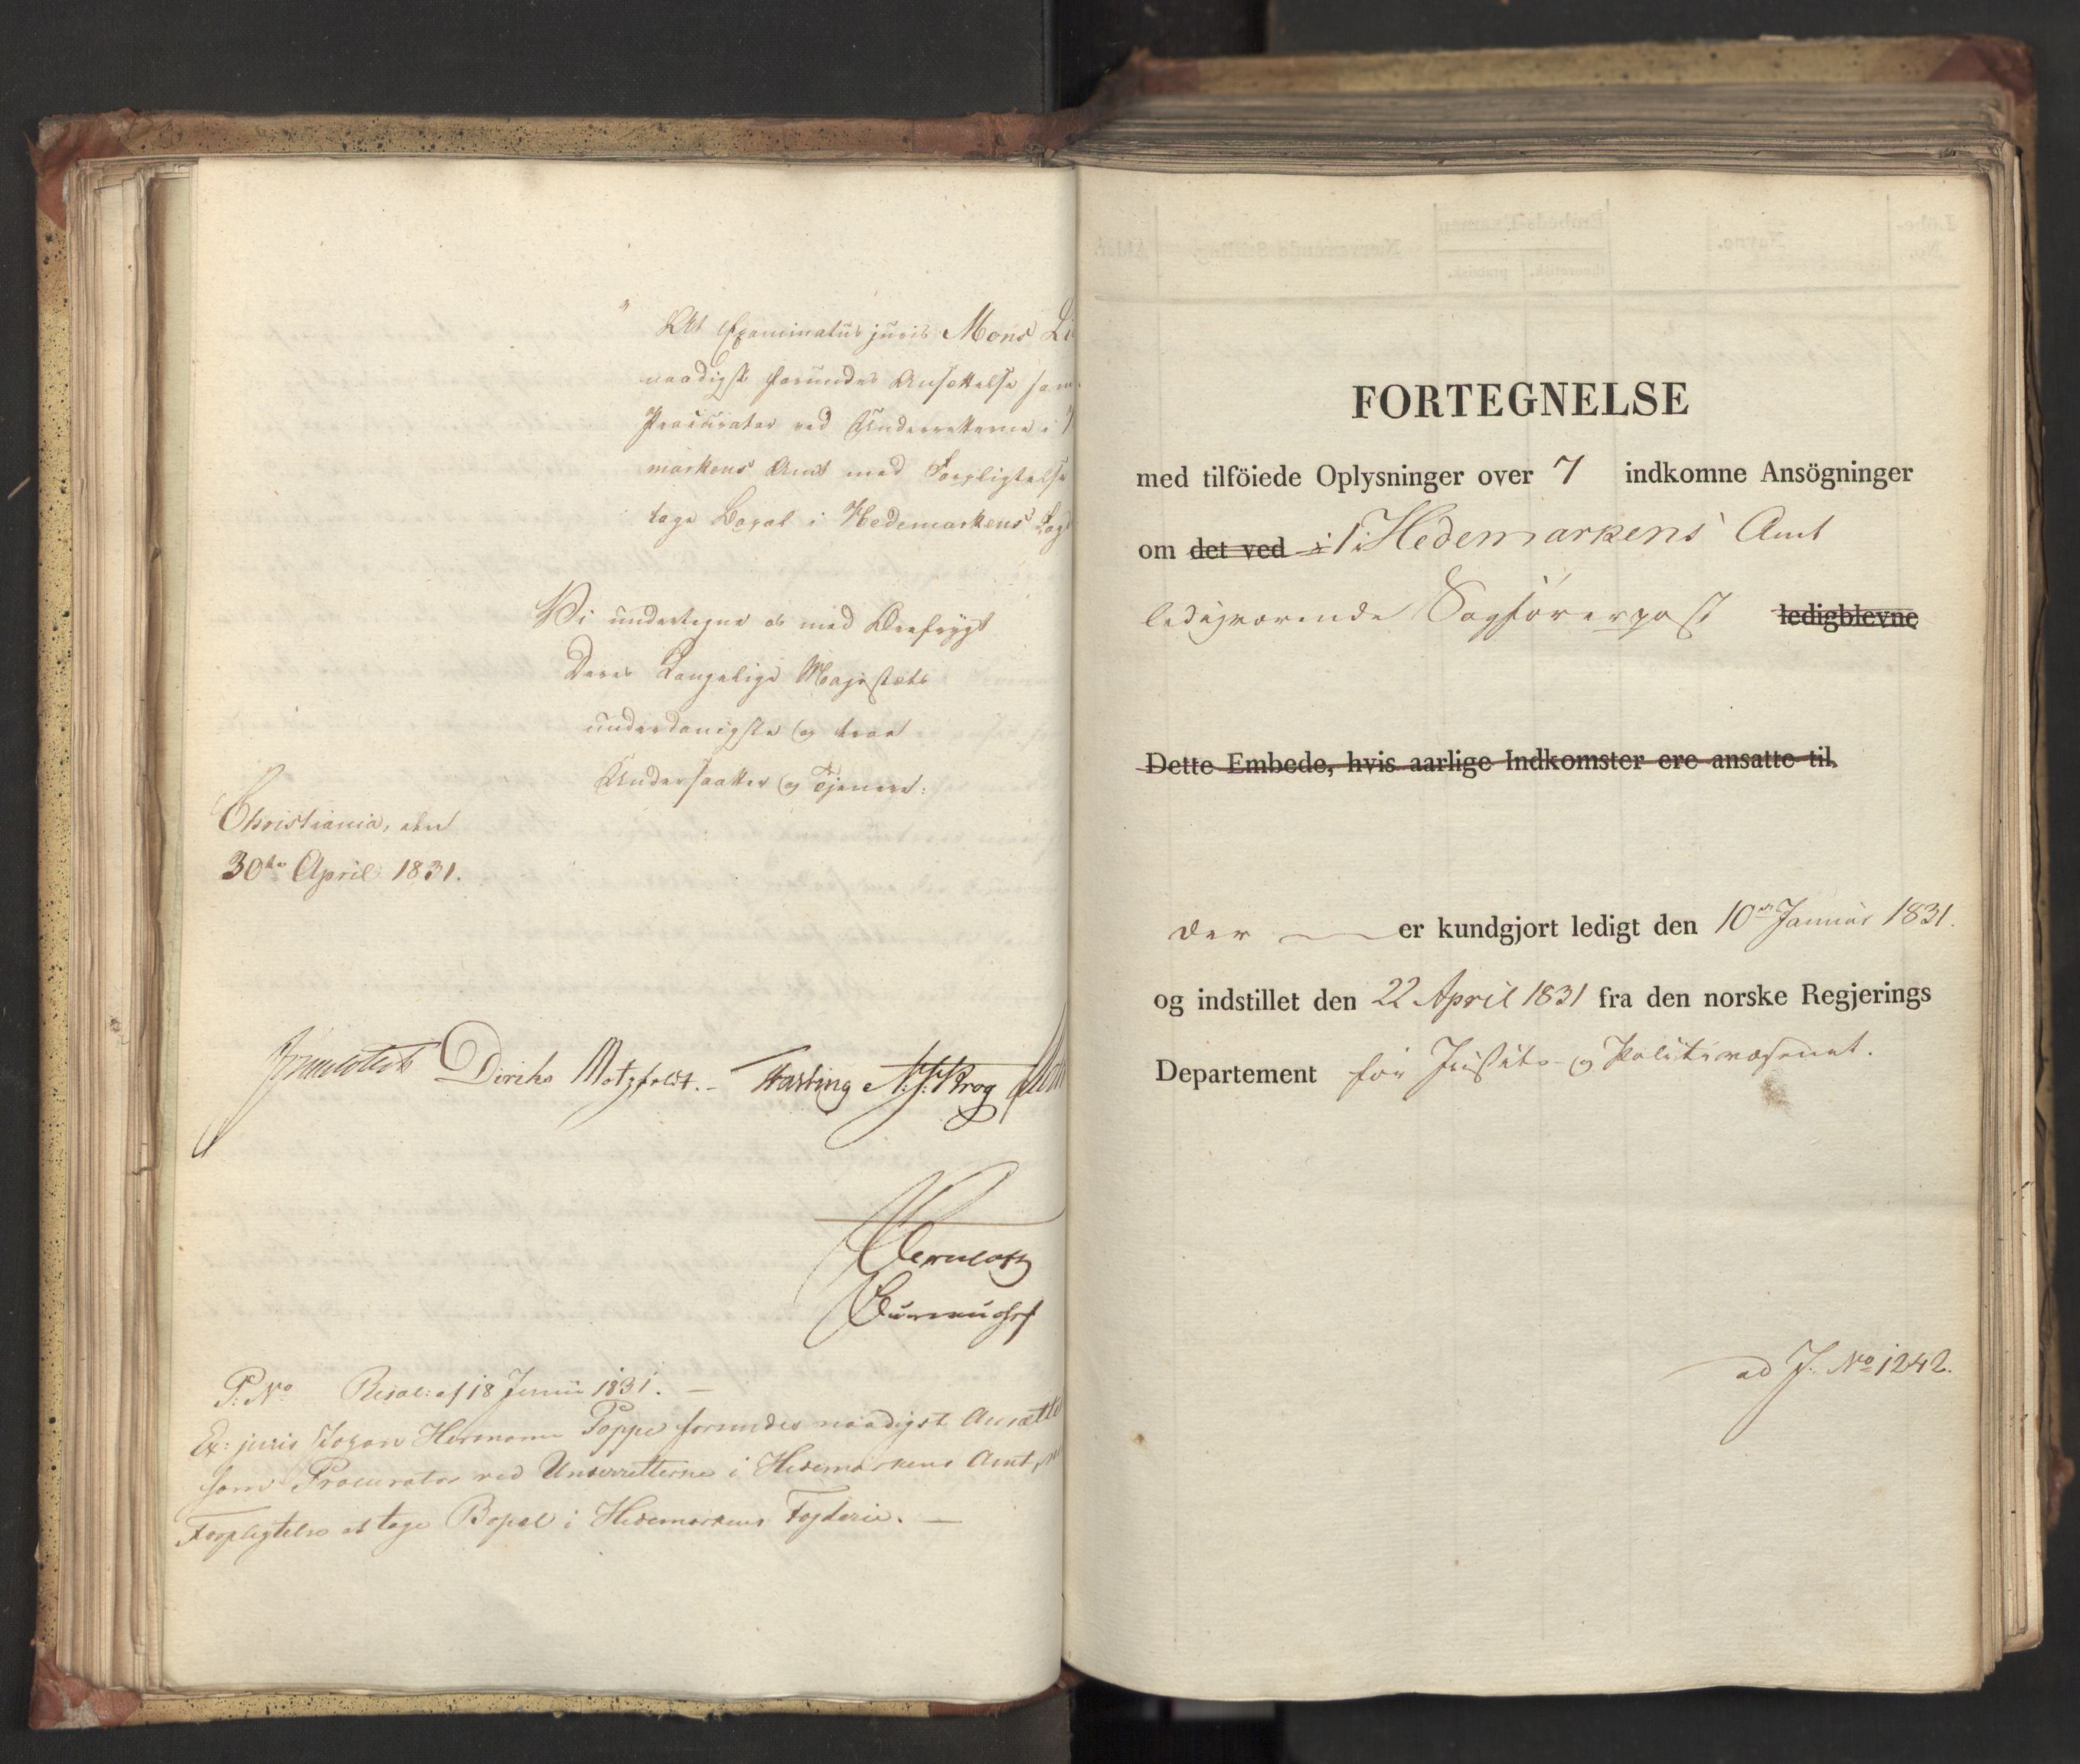 "At Examinatus juris Mons Li
naadigst forundes Ansættelse som
Procurator ved Underretterne i
markens Amt med Forpligtelse
tage Bopæl i Hedemarkens Fog
Vi undertegne os med Ærefrygt
Deres Kongelige Majestæts
underdanigste og troe
Undersaatter og Tjenere:
Christiania, den
30te April 1831.
Diriks Motzfeldt. - Fasting Krog
P: No Resol: af 18 Junii 1831. -
Ex: juris Johan Hermann Poppe forundes naadigst Ansætte
som Procurator ved Underretterne i Hedemarkens Amt,
Forpligtelse at tage Bopæl i Hedemarkens Fogderie. -
FORTEGNELSE
med tilföiede Oplysninger over 7 indkomne Ansögninger
om det ved i 1 i Hedemarkens Amt
ledigværende Sagförerpost ledigblevne
Dette Embede, hvis aarlige Indkomster ere ansatte til,
der er kundgjort ledigt den 10de Januar 1831.
og indstillet den 22 April 1831 fra den norske Regjerings
Departement for Justits- og Politievæsenet.
ad J: No 1242.